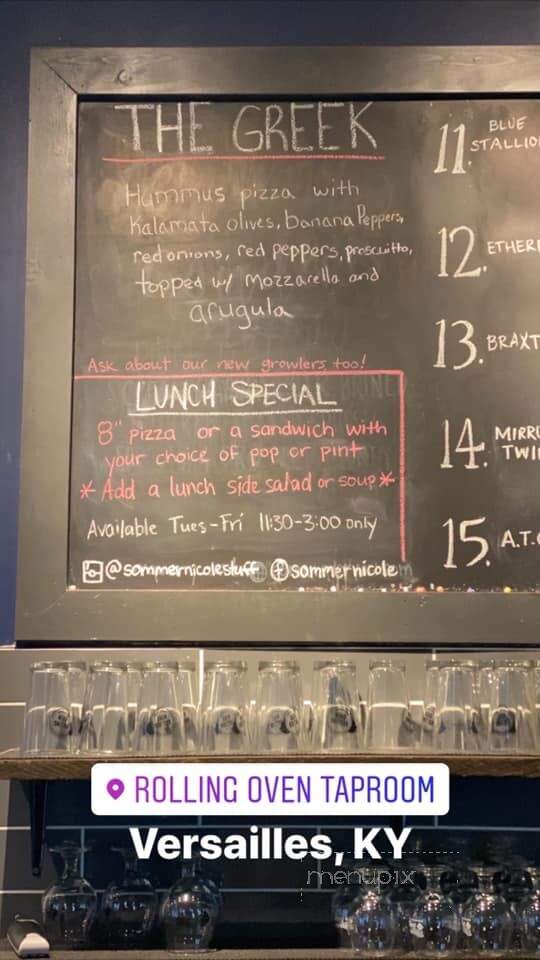 THE GREEK
Hummus pizza with
Kalamata olives, banana Peppers,
red onions, red peppers, prosciutto,
topped w/ Mozzarella and
arugula
Ask about our new growlers too!
LUNCH SPECIAL
8" pizza or a sandwich with
your choice of pop or pint
* Add a lunch side salad or soup *
Available Tues-Fri 11:30-3:00 only
@sommernicolestuff sommernicole
11. BLUE
STALLIO
12. ETHER
13. BRAXT
14. MIRR
TWI
15. A.T.
ROLLING OVEN TAPROOM
Versailles, KY
menupix